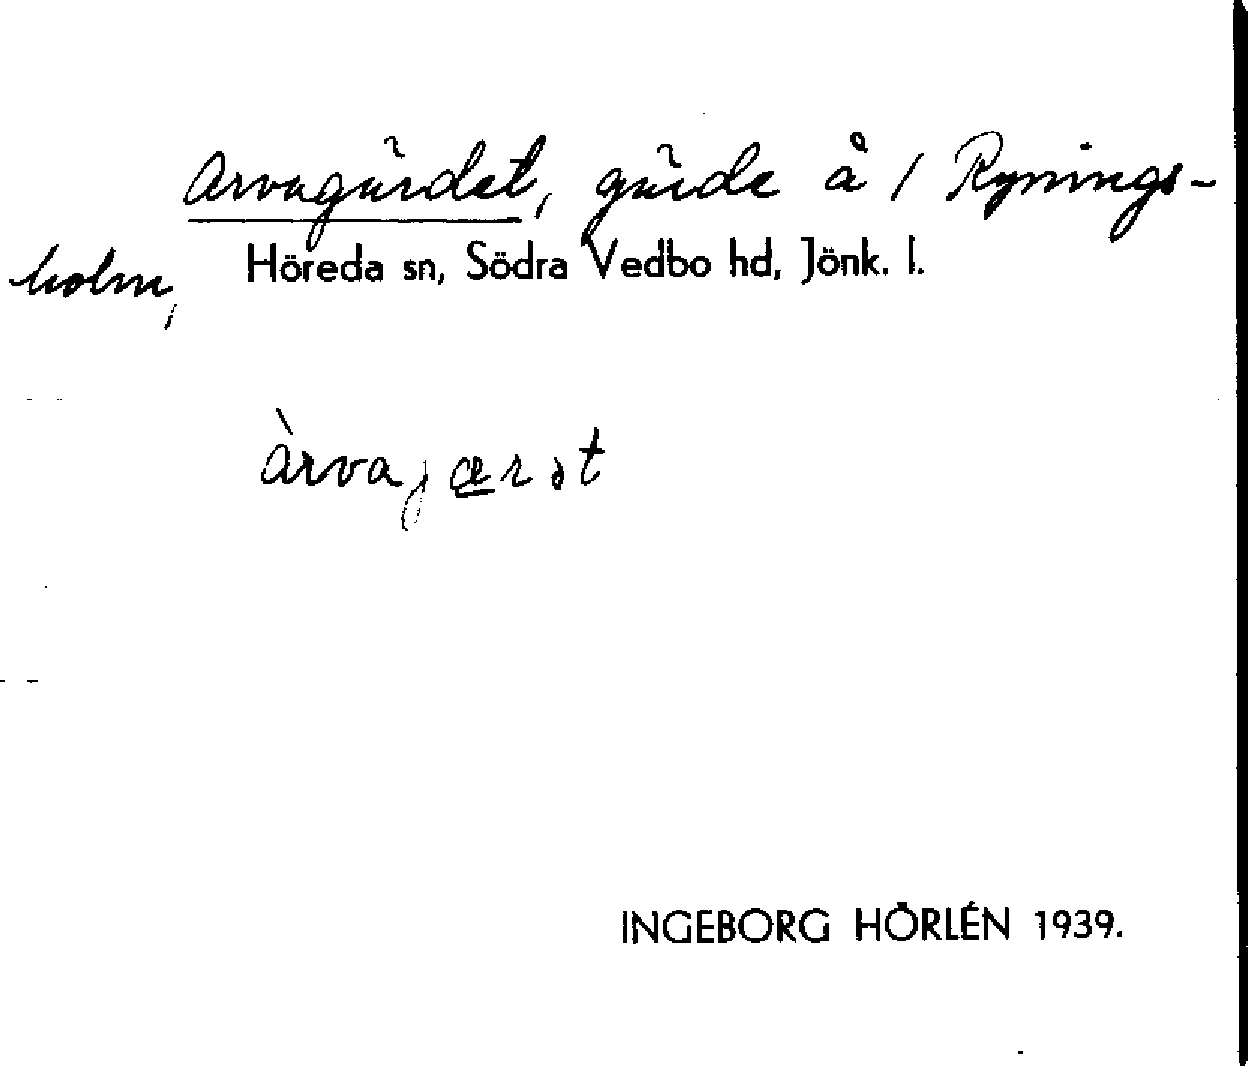 Arvagärdet, gärde å / Rynings-
holm, Höreda sn, Södra Vedbo hd, Jönk. l.
àrvajærət
INGEBORG HÖRLÉN 1939.